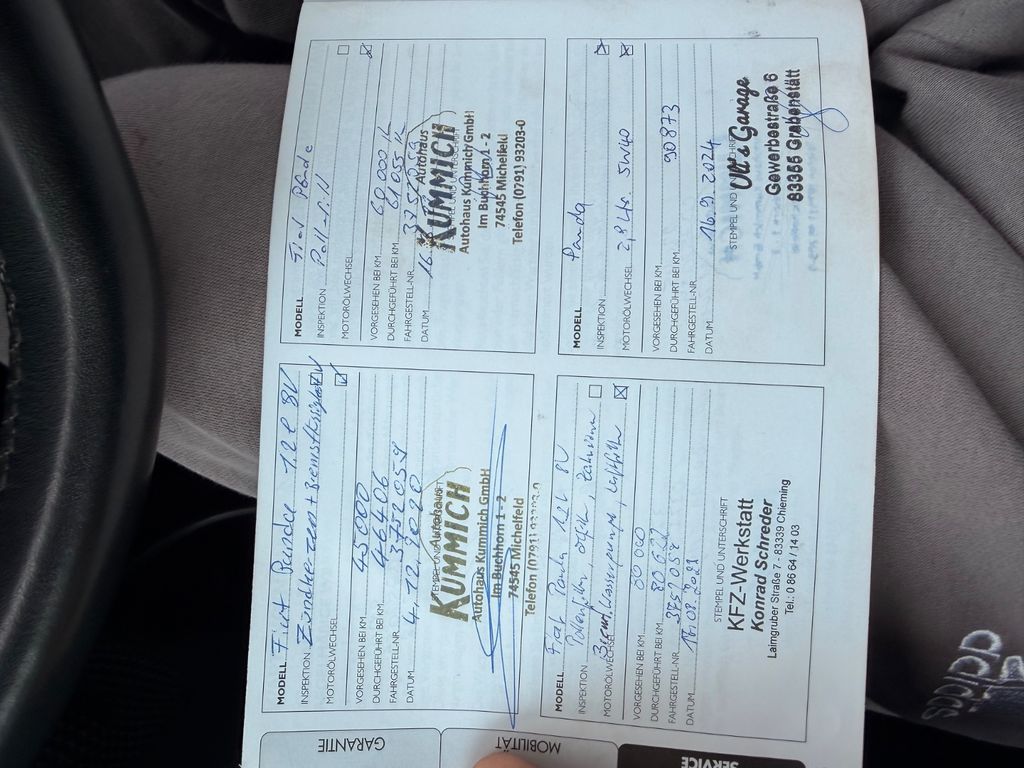 MODELL Fiat Panda 1.2l 8V
INSPEKTION Zündkerzen + Bremsflüssigkeit
MOTORÖLWECHSEL
VORGESEHEN BEI KM 45000
DURCHGEFÜHRT BEI KM 46406
FAHRGESTELL-NR. 3752059
DATUM 4.12.2020
Autohaus
KUMMICH
Autohaus Kummich GmbH
Im Buchhorn 1 - 2
74545 Michelfeld
Telefon (0791) 93203-0
MODELL Fiat
INSPEKTION
MOTORÖLWECHSEL
VORGESEHEN BEI KM 60 000
DURCHGEFÜHRT BEI KM 61055
FAHRGESTELL-NR. 3752059
DATUM 16.
Autohaus
KUMMICH
Autohaus Kummich GmbH
Im Buchhorn 1 - 2
74545 Michelfeld
Telefon (0791) 93203-0
MODELL Fiat Panda 1,2l 8V
INSPEKTION Pollenfilter, Ölfilter, Zahnriemen
MOTORÖLWECHSEL Wasserpumpe, Luftfilter
VORGESEHEN BEI KM 80 000
DURCHGEFÜHRT BEI KM
FAHRGESTELL-NR.
DATUM
STEMPEL UND UNTERSCHRIFT
KFZ-Werkstatt
Konrad Schreder
Laimgruber Straße 7 - 83339 Chieming
Tel.: 0 86 64 / 14 03
MODELL Panda
INSPEKTION
MOTORÖLWECHSEL 2,8 Ltr. 5W40
VORGESEHEN BEI KM
DURCHGEFÜHRT BEI KM 90873
FAHRGESTELL-NR.
DATUM 16.9.2024
STEMPEL UND UNTERSCHRIFT
Ulli's Garage
Gewerbestraße 6
83355 Grabenstätt
GARANTIE
MOBILITÄT
SERVICE
adidas